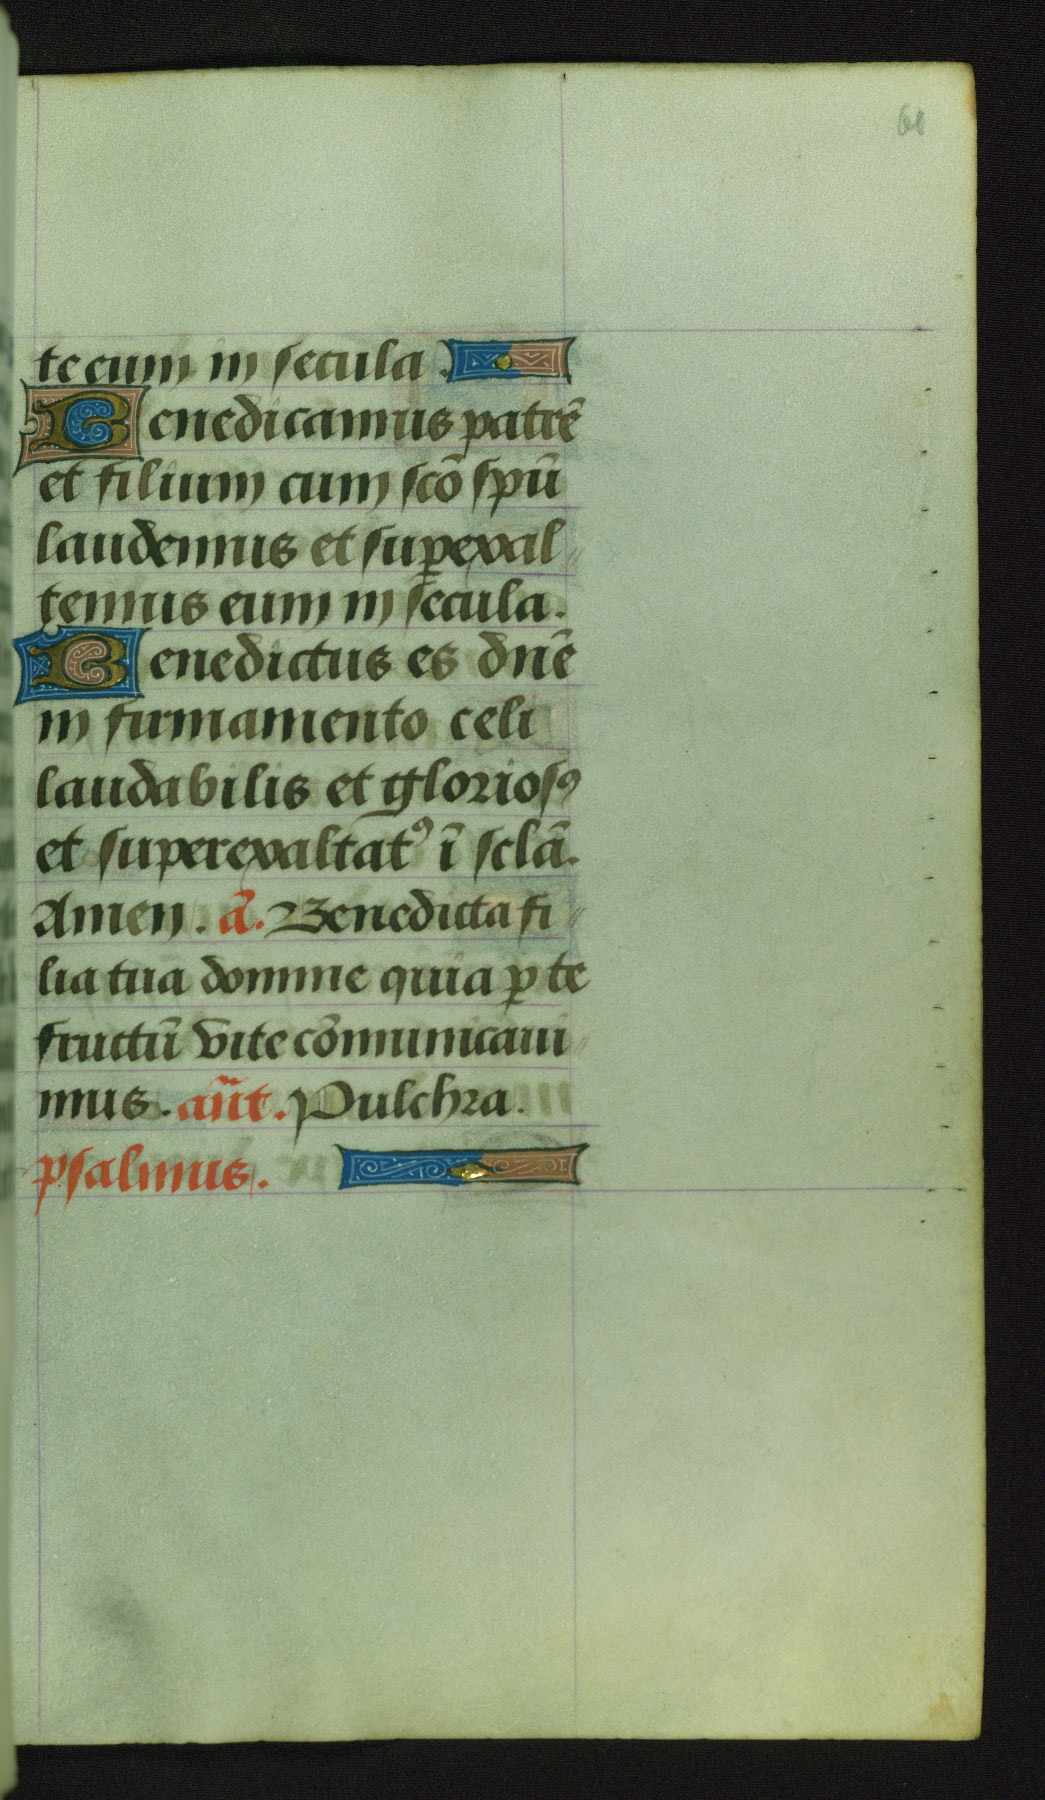 60
te eum in secula.
Benedicamus patrē
et filium cum scō spū
laudemus et superexal
temus eum in secula.
Benedictus es dnē
in firmamento celi
laudabilis et gloriosꝰ
et superexaltatꝰ ī sclā.
Amen. ā. Benedicta fi
lia tua domine quia ꝑ te
fructū vite cōmunicaui
mus. an̄t. Pulchra.
psalmus.